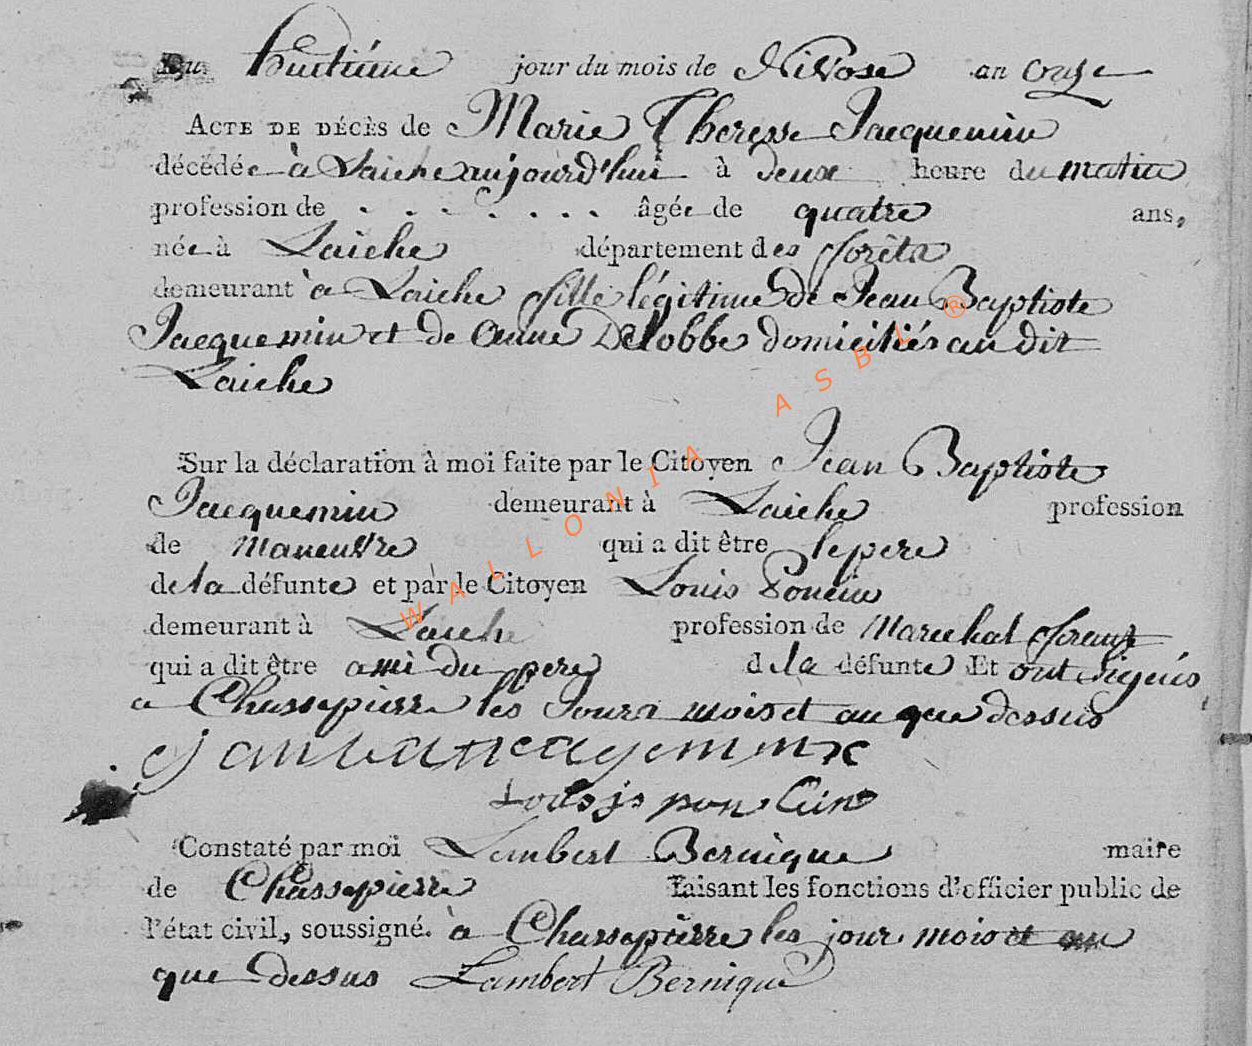 Du huitiéme jour du mois de Nivose an onze
ACTE DE DÉCÈS de Marie Theresse Jacquemin
décédée à Laiche aujourd'hui à deux heure du matin
profession de . . . . . . . âgée de quatre ans,
née à Laiche département des forêts
demeurant à Laiche fille légitime de Jean Baptiste
Jacquemin et de Anne Delobbe domiciliés au dit
Laiche
Sur la déclaration à moi faite par le Citoyen Jean Baptiste
Jacquemin demeurant à Laiche profession
de maneuvre qui a dit être le pere
de la défunte et par le Citoyen Louis Poncin
demeurant à Laiche profession de marechal ferant
qui a dit être ami du pere de la défunte Et ont signés
a Chassepierre les Jours mois et an que dessus
Louis poncin
Constaté par moi Lambert Bernique maire
de Chassepierre faisant les fonctions d'officier public de
l'état civil, soussigné. à Chassepierre les jour mois et an
que dessus Lambert Bernique
WALLONIA ASBL ®